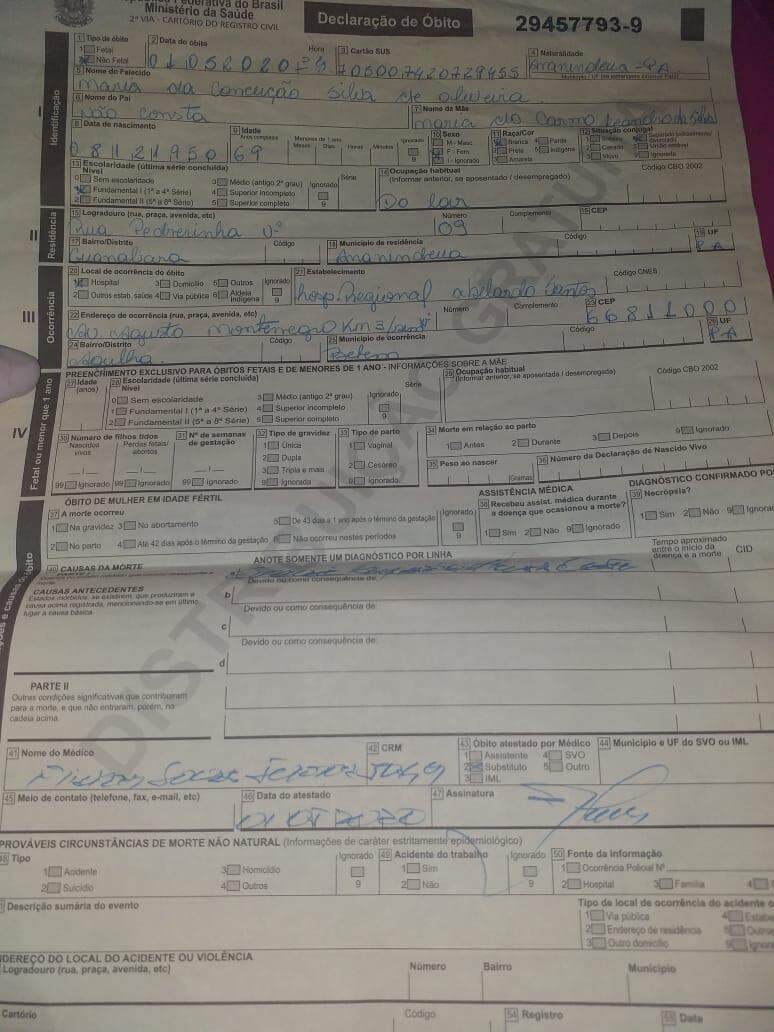 Federativa do Brasil
Ministério da Saúde
2ª VIA - CARTÓRIO DO REGISTRO CIVIL
Declaração de Óbito
29457793-9
I
Identificação
1 Tipo de óbito
1 Fetal
2 Não Fetal
2 Data do óbito
Hora
01052020
3 Cartão SUS
4 Naturalidade
Ananindeua - PA
Município / UF (se estrangeiro informar País)
5 Nome do Falecido
Maria da Conceição Silva de Oliveira
6 Nome do Pai
Não consta
7 Nome da Mãe
Maria do Carmo Leandra da Silva
8 Data de nascimento
08121950
9 Idade
Anos completos
69
Menores de 1 ano
Meses Dias Horas Minutos
Ignorado
9
10 Sexo
M - Masc.
F - Fem.
I - Ignorado
11 Raça/Cor
1 Branca 4 Parda
2 Preta 5 Indígena
3 Amarela
12 Situação conjugal
1 Solteiro
2 Casado
3 Viúvo
4 Separado judicialmente/divorciado
5 União estável
9 Ignorada
13 Escolaridade (última série concluída)
Nível
0 Sem escolaridade
1 Fundamental I (1ª a 4ª Série)
2 Fundamental II (5ª a 8ª Série)
3 Médio (antigo 2º grau)
4 Superior incompleto
5 Superior completo
Ignorado
9
Série
14 Ocupação habitual
(Informar anterior, se aposentado / desempregado)
Código CBO 2002
Do lar
II
Residência
15 Logradouro (rua, praça, avenida, etc)
Rua Pedreirinha
Número
09
Complemento
16 CEP
17 Bairro/Distrito
Guanabara
Código
18 Município de residência
Ananindeua
Código
19 UF
PA
III
Ocorrência
20 Local de ocorrência do óbito
1 Hospital
2 Outros estab. saúde
3 Domicílio
4 Via pública
5 Outros
6 Aldeia indígena
Ignorado
9
21 Estabelecimento
Hosp. Regional Abelardo Santos
Código CNES
22 Endereço de ocorrência (rua, praça, avenida, etc)
Av. Augusto Montenegro Km 3/
Número
Complemento
23 CEP
66811000
24 Bairro/Distrito
Agulha
Código
25 Município de ocorrência
Belém
Código
26 UF
PA
IV
Fetal ou menor que 1 ano
PREENCHIMENTO EXCLUSIVO PARA ÓBITOS FETAIS E DE MENORES DE 1 ANO - INFORMAÇÕES SOBRE A MÃE
27 Idade
(anos)
28 Escolaridade (última série concluída)
Nível
0 Sem escolaridade
1 Fundamental I (1ª a 4ª Série)
2 Fundamental II (5ª a 8ª Série)
3 Médio (antigo 2º grau)
4 Superior incompleto
5 Superior completo
Ignorado
9
Série
29 Ocupação habitual
(Informar anterior, se aposentada / desempregada)
Código CBO 2002
30 Número de filhos tidos
Nascidos vivos
Perdas fetais/abortos
99 Ignorado 99 Ignorado
31 Nº de semanas de gestação
99 Ignorado
32 Tipo de gravidez
1 Única
2 Dupla
3 Tripla e mais
9 Ignorada
33 Tipo de parto
1 Vaginal
2 Cesáreo
9 Ignorado
34 Morte em relação ao parto
1 Antes 2 Durante 3 Depois 9 Ignorado
35 Peso ao nascer
Gramas
36 Número da Declaração de Nascido Vivo
ÓBITO DE MULHER EM IDADE FÉRTIL
37 A morte ocorreu
1 Na gravidez
2 No parto
3 No abortamento
4 Até 42 dias após o término da gestação
5 De 43 dias a 1 ano após o término da gestação
8 Não ocorreu nestes períodos
Ignorado
9
ASSISTÊNCIA MÉDICA
38 Recebeu assist. médica durante
a doença que ocasionou a morte?
1 Sim 2 Não 9 Ignorado
DIAGNÓSTICO CONFIRMADO PO
39 Necrópsia?
1 Sim 2 Não 9 Ignor
40 CAUSAS DA MORTE
ANOTE SOMENTE UM DIAGNÓSTICO POR LINHA
Tempo aproximado
entre o início da
doença e a morte
CID
Devido ou como consequência de:
CAUSAS ANTECEDENTES
Estados mórbidos, se existirem, que produziram a
causa acima registrada, mencionando-se em último
lugar a causa básica.
b
Devido ou como consequência de:
c
Devido ou como consequência de:
d
PARTE II
Outras condições significativas que contribuíram
para a morte, e que não entraram, porém, na
cadeia acima.
41 Nome do Médico
42 CRM
43 Óbito atestado por Médico
1 Assistente
2 Substituto
3 IML
4 SVO
5 Outro
44 Município e UF do SVO ou IML
45 Meio de contato (telefone, fax, e-mail, etc)
46 Data do atestado
01052020
47 Assinatura
PROVÁVEIS CIRCUNSTÂNCIAS DE MORTE NÃO NATURAL (Informações de caráter estritamente epidemiológico)
48 Tipo
1 Acidente
2 Suicídio
3 Homicídio
4 Outros
Ignorado
9
49 Acidente do trabalho
1 Sim
2 Não
Ignorado
9
50 Fonte da informação
1 Ocorrência Policial Nº
2 Hospital 3 Família 4
Descrição sumária do evento
Tipo de local de ocorrência do acidente o
1 Via pública
2 Endereço de residência
3 Outro domicílio
4 Estabe
5 Outros
9 Ignora
NDEREÇO DO LOCAL DO ACIDENTE OU VIOLÊNCIA
Logradouro (rua, praça, avenida, etc)
Número
Bairro
Município
Cartório
Código
54 Registro
55 Data
DISTRIBUIÇÃO GRATUITA